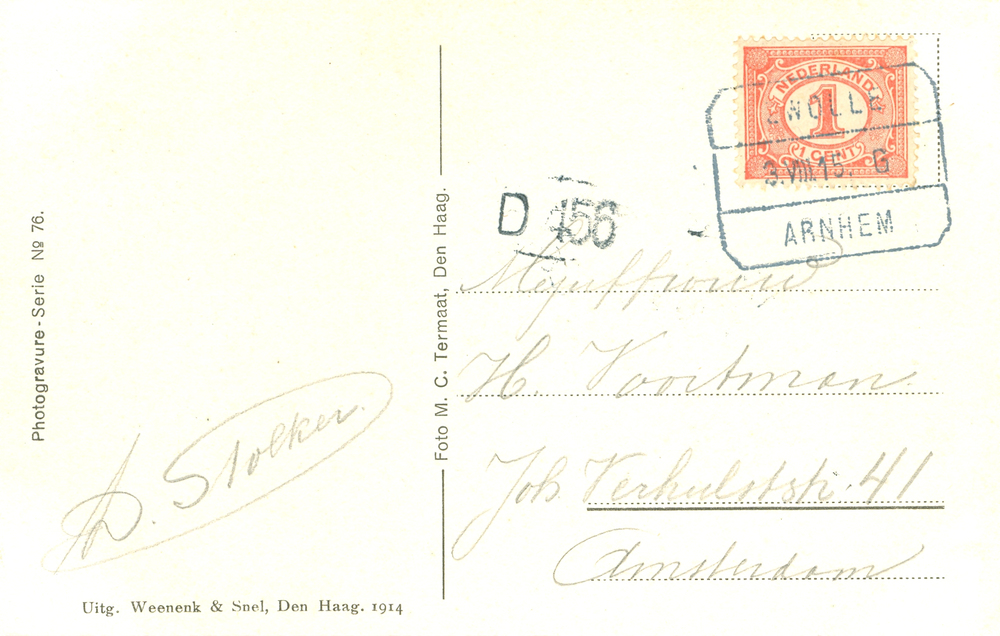 Photogravure-Serie № 76.
D. Stolker.
Uitg. Weenenk & Snel, Den Haag. 1914
Foto M. C. Termaat, Den Haag.
D 456
NEDERLAND
1
1 CENT
ZWOLLE
3 VIII.15. G
ARNHEM
Mejuffrouw
H. Voortman.
Joh. Verhulststr. 41
Amsterdam